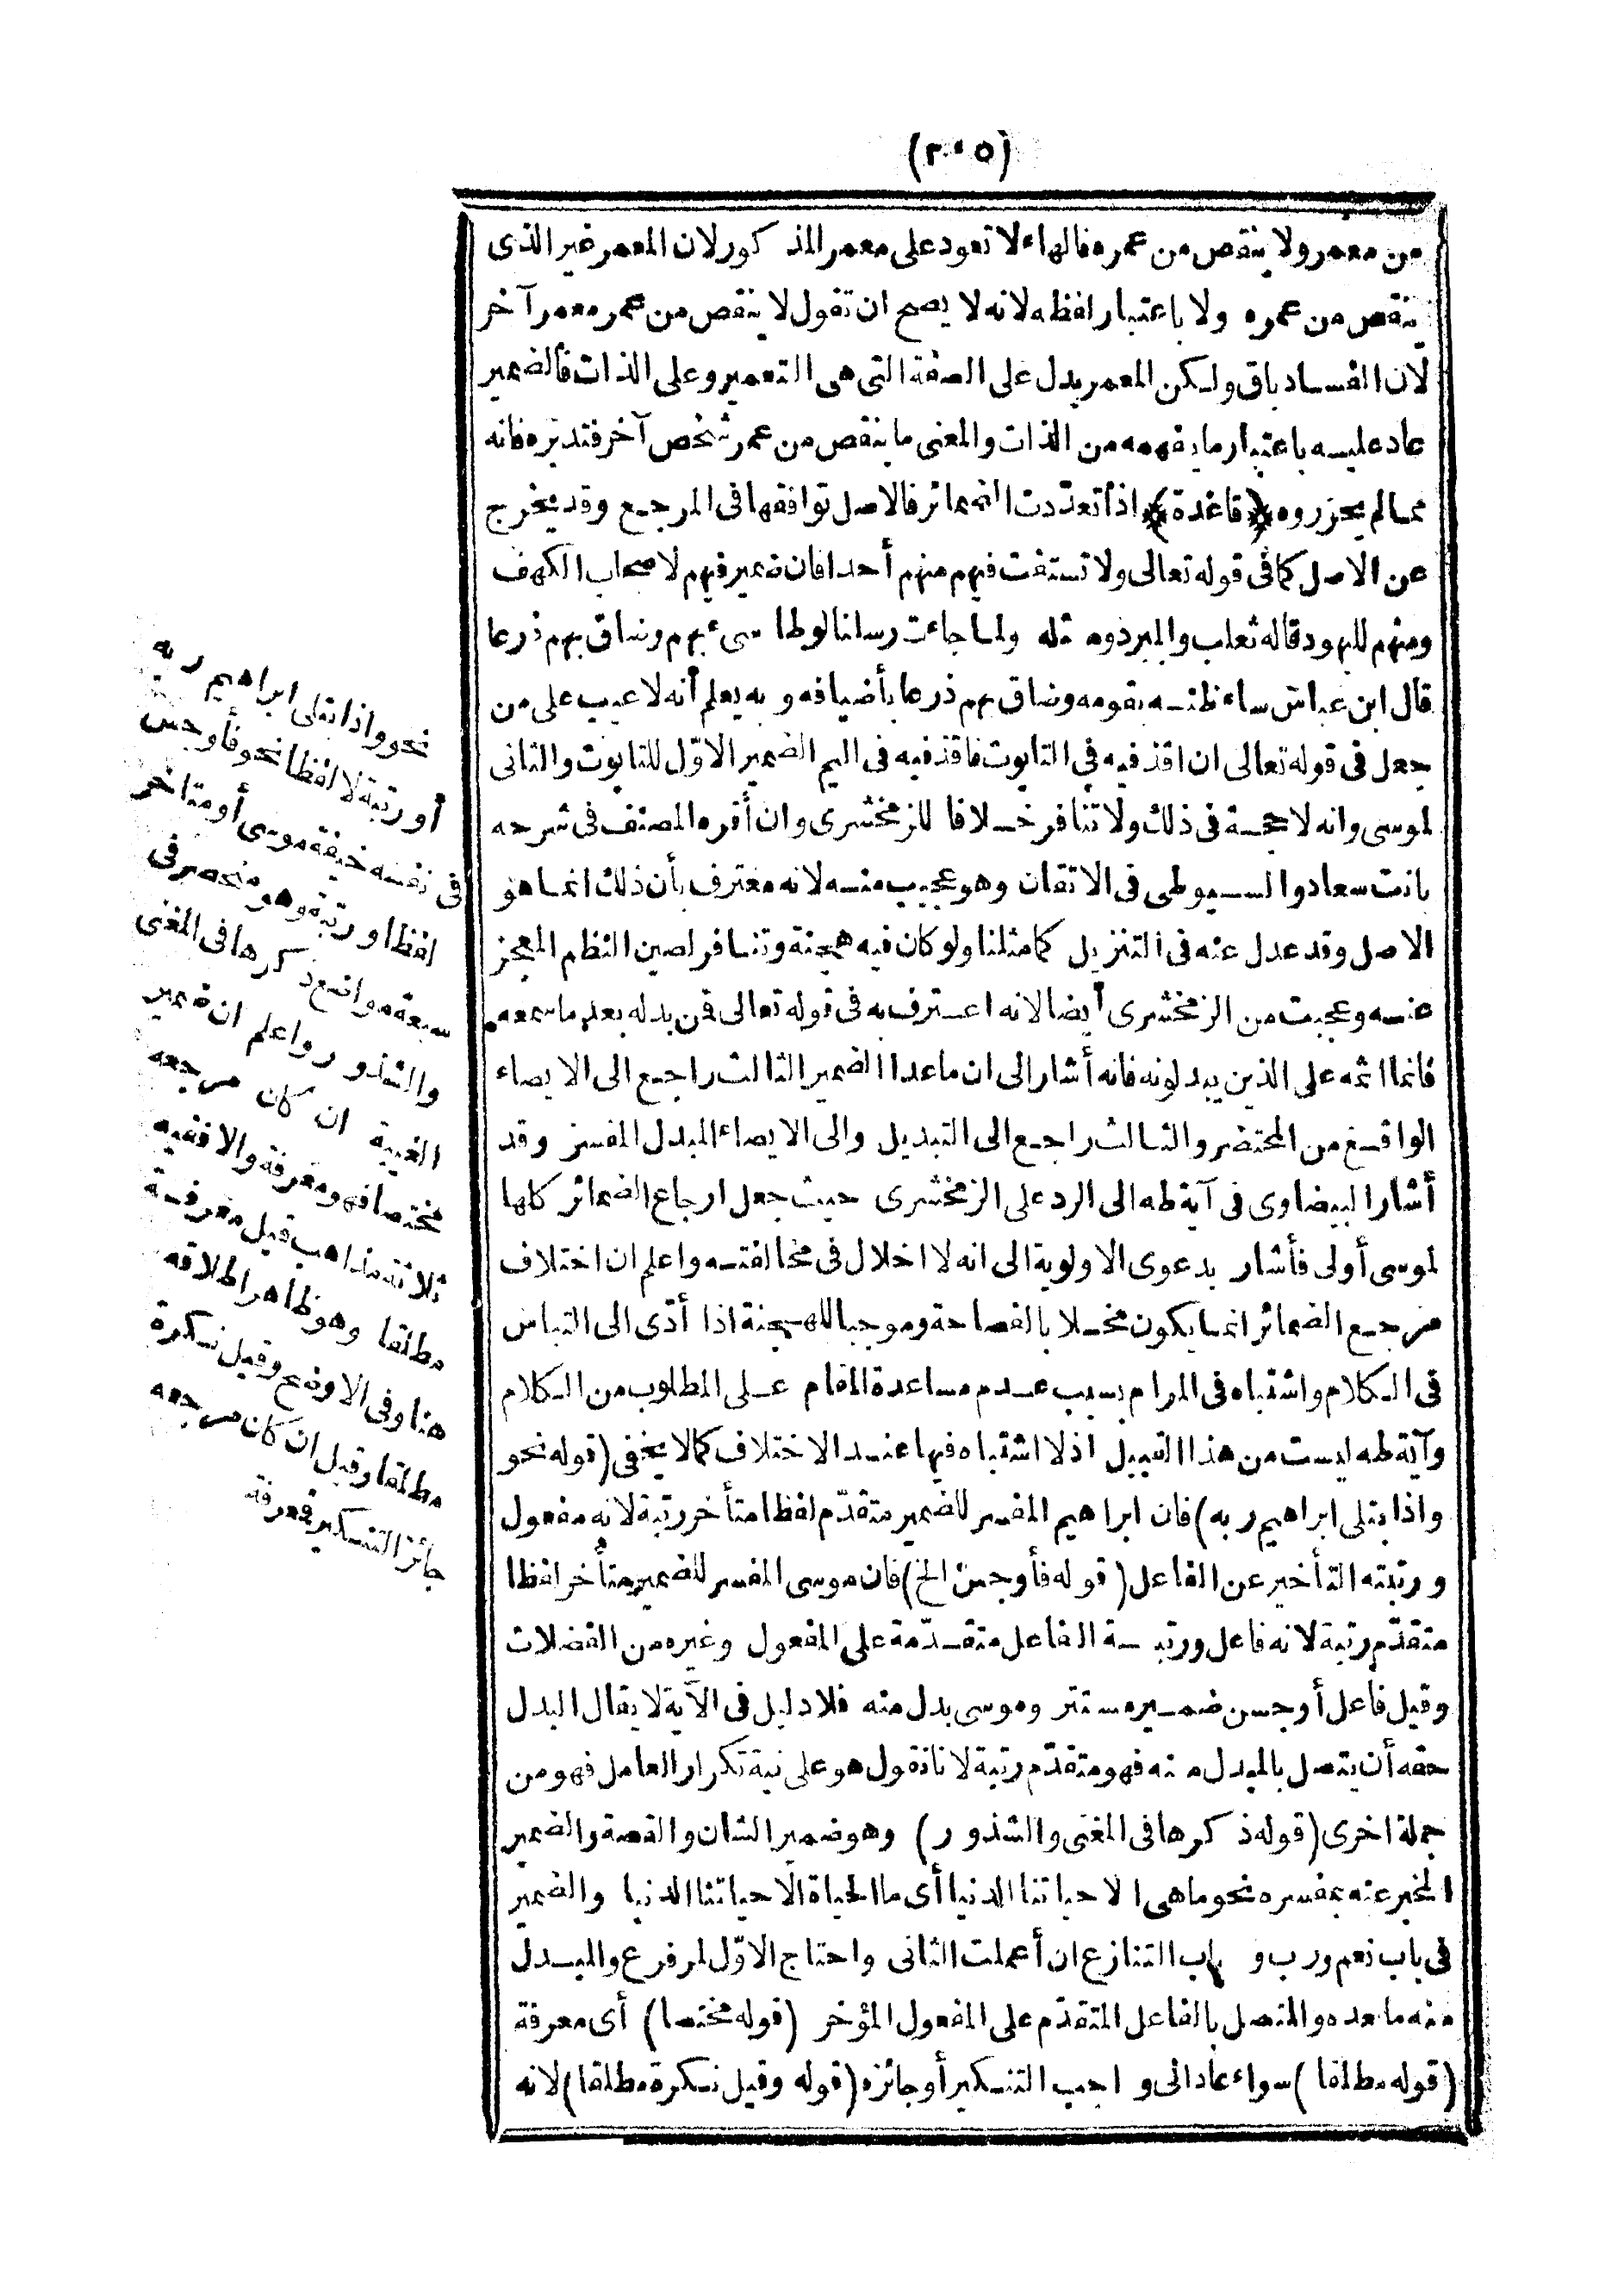 (٢٠٥)
من معمر ولا ينقص من عمره فالهاء لا تعود على معمر المذكور لان المعمر غير الذى
ينقص من عمره ولا باعتبار لفظه لانه لا يصح ان تقول لا ينقص من عمر معمر آخر
لان الفساد باق ولكن المعمر يدل على الصفة التى هى التعمير وعلى الذات فالضمير
عاد عليه باعتبار ما يفهمه من الذات والمعنى ما ينقص من عمر شخص آخر فتدبره فانه
ممالم يحرروه ﴿قاعدة﴾ اذا تعدّدت الضمائر فالاصل توافقها فى المرجع وقد يخرج
عن الاصل كما فى قوله تعالى ولا تستفت فيهم منهم أحدا فان ضمير فيهم لاصحاب الكهف
ومنهم لليهود قاله ثعلب والمبرد ومثله ولما جاءت رسلنا لوطا سىء بهم وضاق بهم ذرعا
قال ابن عباس ساء ظنه بقومه وضاق بهم ذرعا بأضيافه وبه يعلم أنه لا عيب على من
جعل فى قوله تعالى ان اقذفيه فى التابوت فاقذفيه فى اليم الضمير الاوّل للتابوت والثانى
لموسى وانه لا هجنة فى ذلك ولا تنافر خلافا للزمخشرى وان أقره المصنف فى شرحه
بانت سعاد والسيوطى فى الاتقان وهو عجيب منه لانه معترف بأن ذلك انما هو
الاصل وقد عدل عنه فى التنزيل كما مثلنا ولو كان فيه هجنة وتنافر لصين النظم المعجز
عنه وعجبت من الزمخشرى أيضا لانه اعترف به فى قوله تعالى فمن بدله بعد ما سمعه
فانما اثمه على الذين يبدلونه فانه أشار الى ان ماعدا الضمير الثالث راجع الى الايصاء
الواقع من المحتضر والثالث راجع الى التبديل والى الايصاء المبدل المفسر وقد
أشار البيضاوى فى آية طه الى الرد على الزمخشرى حيث جعل ارجاع الضمائر كلها
لموسى أولى فأشار بدعوى الاولوية الى انه لا اخلال فى مخالفته واعلم ان اختلاف
مرجع الضمائر انما يكون مخلا بالفصاحة وموجبا للهجنة اذا أدّى الى التباس
فى الكلام واشتباه فى المرام بسبب عدم مساعدة المقام على المطلوب من الكلام
وآية طه ليست من هذا القبيل اذ لا اشتباه فيها عند الاختلاف كما لا يخفى (قوله نحو
واذ ابتلى ابراهيم ربه) فان ابراهيم المفسر للضمير متقدّم لفظا متأخر رتبة لانه مفعول
ورتبته التأخير عن الفاعل (قوله فأوجس الخ) فان موسى المفسر للضمير متأخر لفظا
متقدّم رتبة لانه فاعل ورتبة الفاعل متقدّمة على المفعول وغيره من الفضلات
وقيل فاعل أوجس ضمير مستتر وموسى بدل منه فلا دليل فى الآية لا يقال البدل
حقه أن يتصل بالمبدل منه فهو متقدّم رتبة لانا نقول هو على نية تكرار العامل فهو من
جملة اخرى (قوله ذكرها فى المغنى والشذور) وهو ضمير الشان والقصة والضمير
المخبر عنه بمفسره نحو ما هى الا حياتنا الدنيا أى ما الحياة الا حياتنا الدنيا والضمير
فى باب نعم ورب و باب التنازع ان أعملت الثانى واحتاج الاوّل لمرفوع والمبدل
منه ما بعده والمتصل بالفاعل المتقدّم على المفعول المؤخر (قوله مختصا) أى معرفة
(قوله مطلقا) سواء عاد الى واجب التنكير أو جائزه (قوله وقيل نكرة مطلقا) لانه
نحو واذ ابتلى ابراهيم ربه
أو رتبة لا لفظا نحو فأوجس
فى نفسه خيفة موسى أو متاخر
لفظا ورتبة وهو منحصر فى
سبعة مواضع ذكرها فى المغنى
والشذور واعلم ان ضمير
الغيبة ان كان مرجعه
مختصا فهو معرفة والا ففيه
ثلاثة مذاهب قيل معرفة
مطلقا وهو ظاهر اطلاقه
هنا وفى الاوضح وقيل نكرة
مطلقا وقيل ان كان مرجعه
جائز التنكير فمعرفة